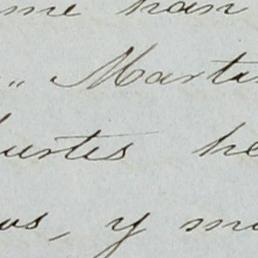 me han
„ Marti
uertes he
os, y mo